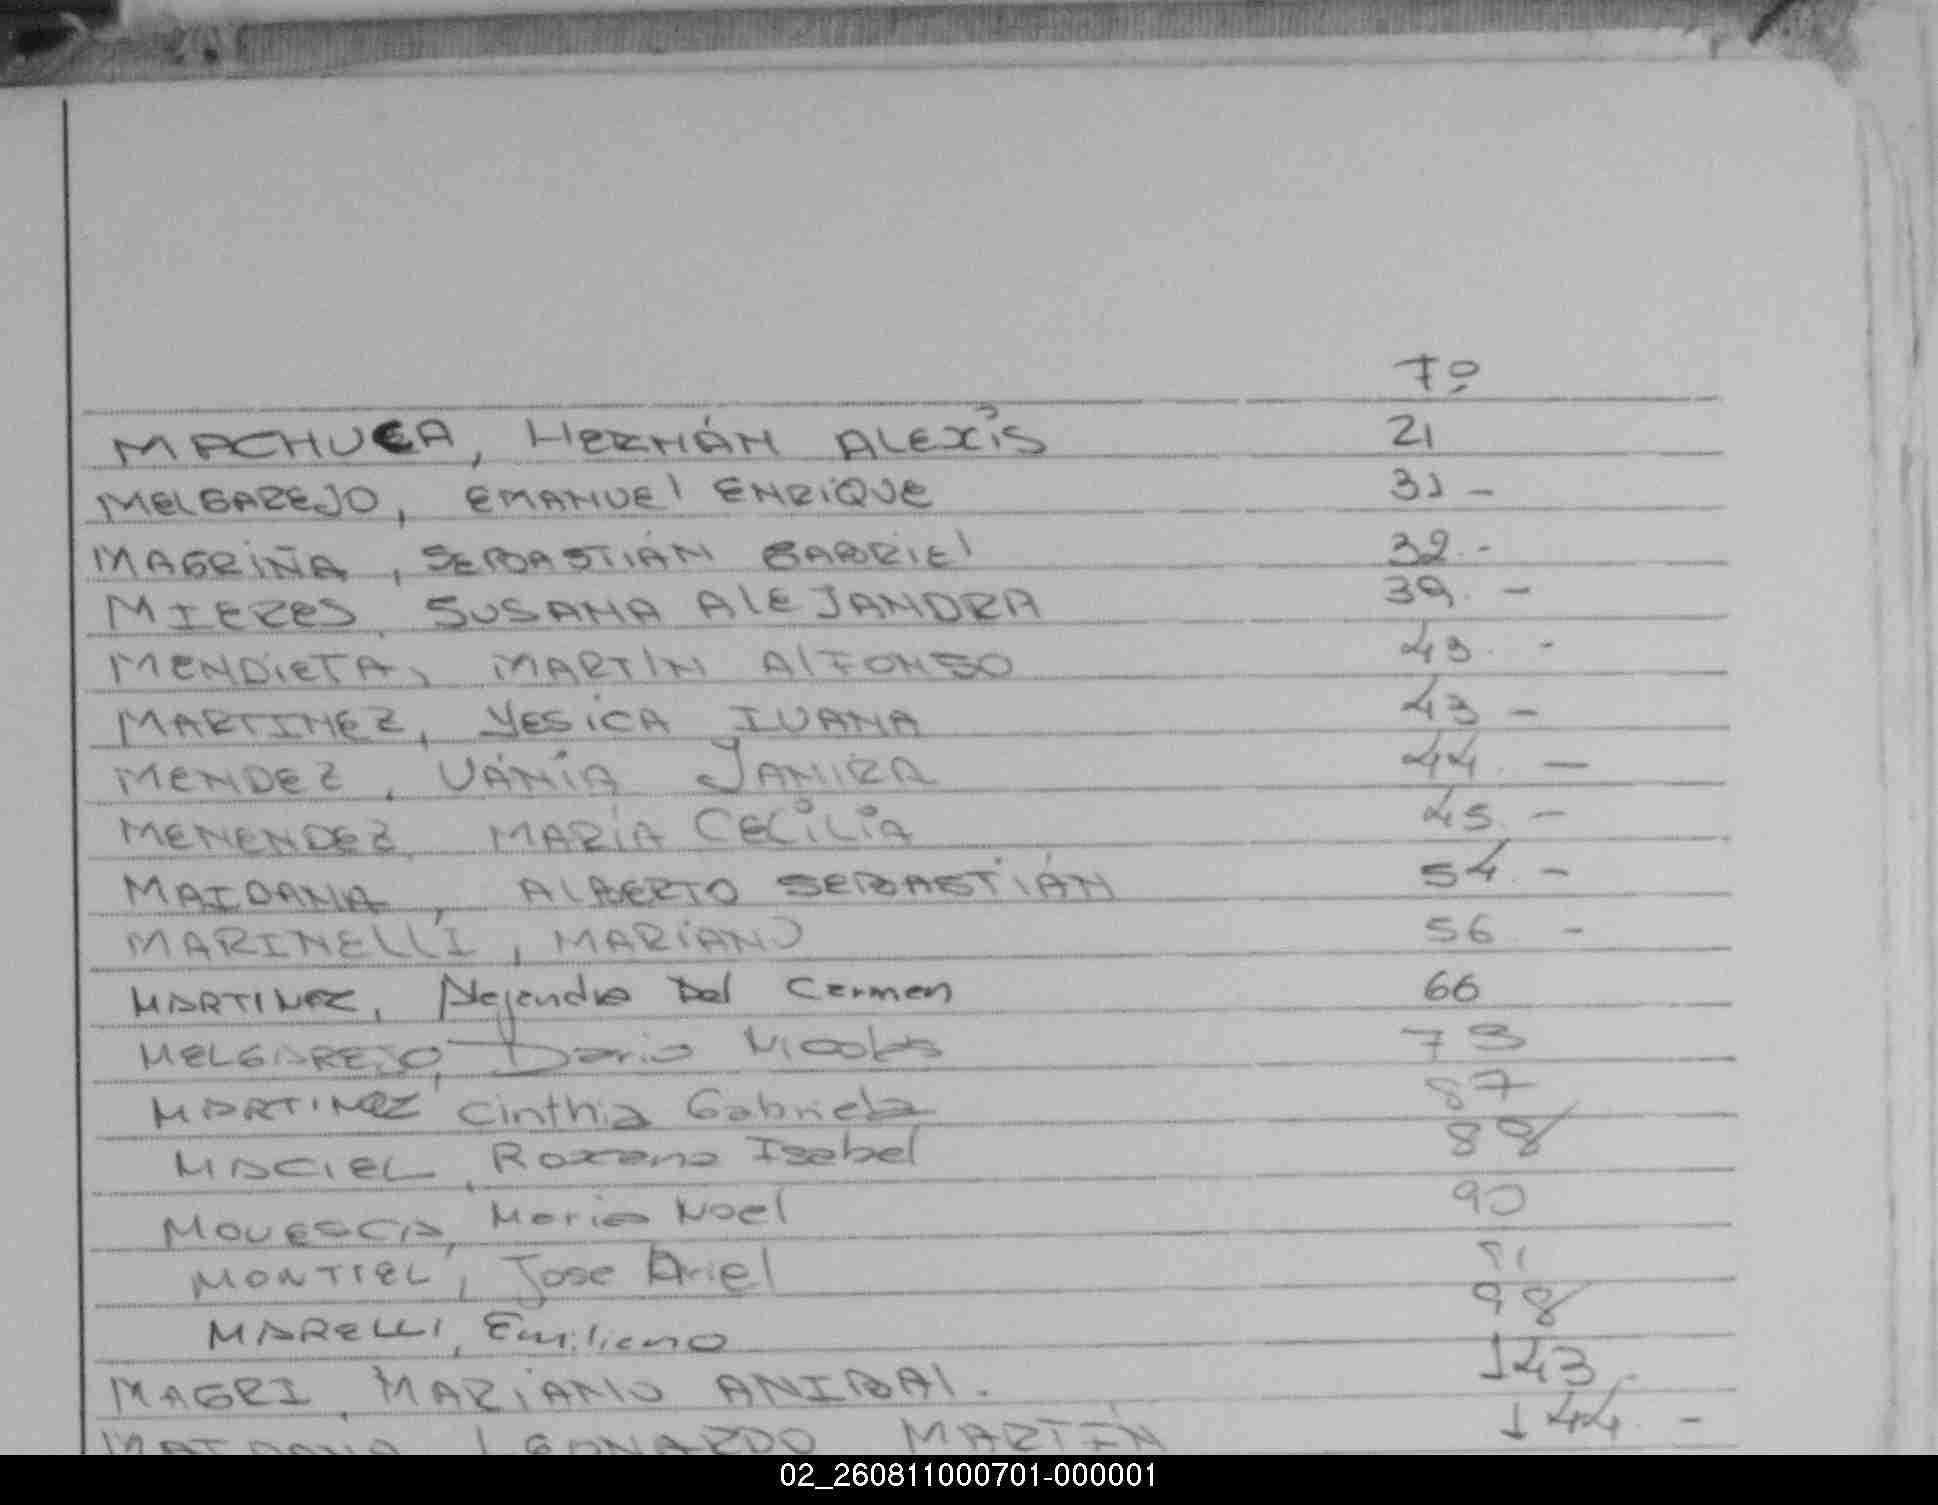 Fº
MACHUCA, HERNÁN ALEXIS 21
MELGAREJO, EMANUEL ENRIQUE 31 -
MAGRIÑA, SEBASTIÁN GABRIEL 32.-
MIERES, SUSANA ALEJANDRA 39. -
MENDIETA, MARTIN ALFONSO 43. -
MARTINEZ, YESICA IVANA 43 -
MENDEZ, VÁNIA JANIRA 44. -
MENENDEZ, MARÍA CECILIA 45. -
MAIDANA, ALBERTO SEBASTIÁN 54. -
MARINELLI, MARIANO 56 -
MARTINEZ, Alejandra Del Carmen 66
MELGAREJO, Dario Nicolas 73
MARTINEZ Cinthia Gabriela 87
MACIEL, Roxana Isabel 88
Maria Noel 90
MONTIEL, Jose Ariel 91
MARELLI, Emiliano 98
MAGRI, MARIANO ANIBAL. 143.
MAIDANA, LEONARDO MARTÍN 144. -
02_260811000701-000001